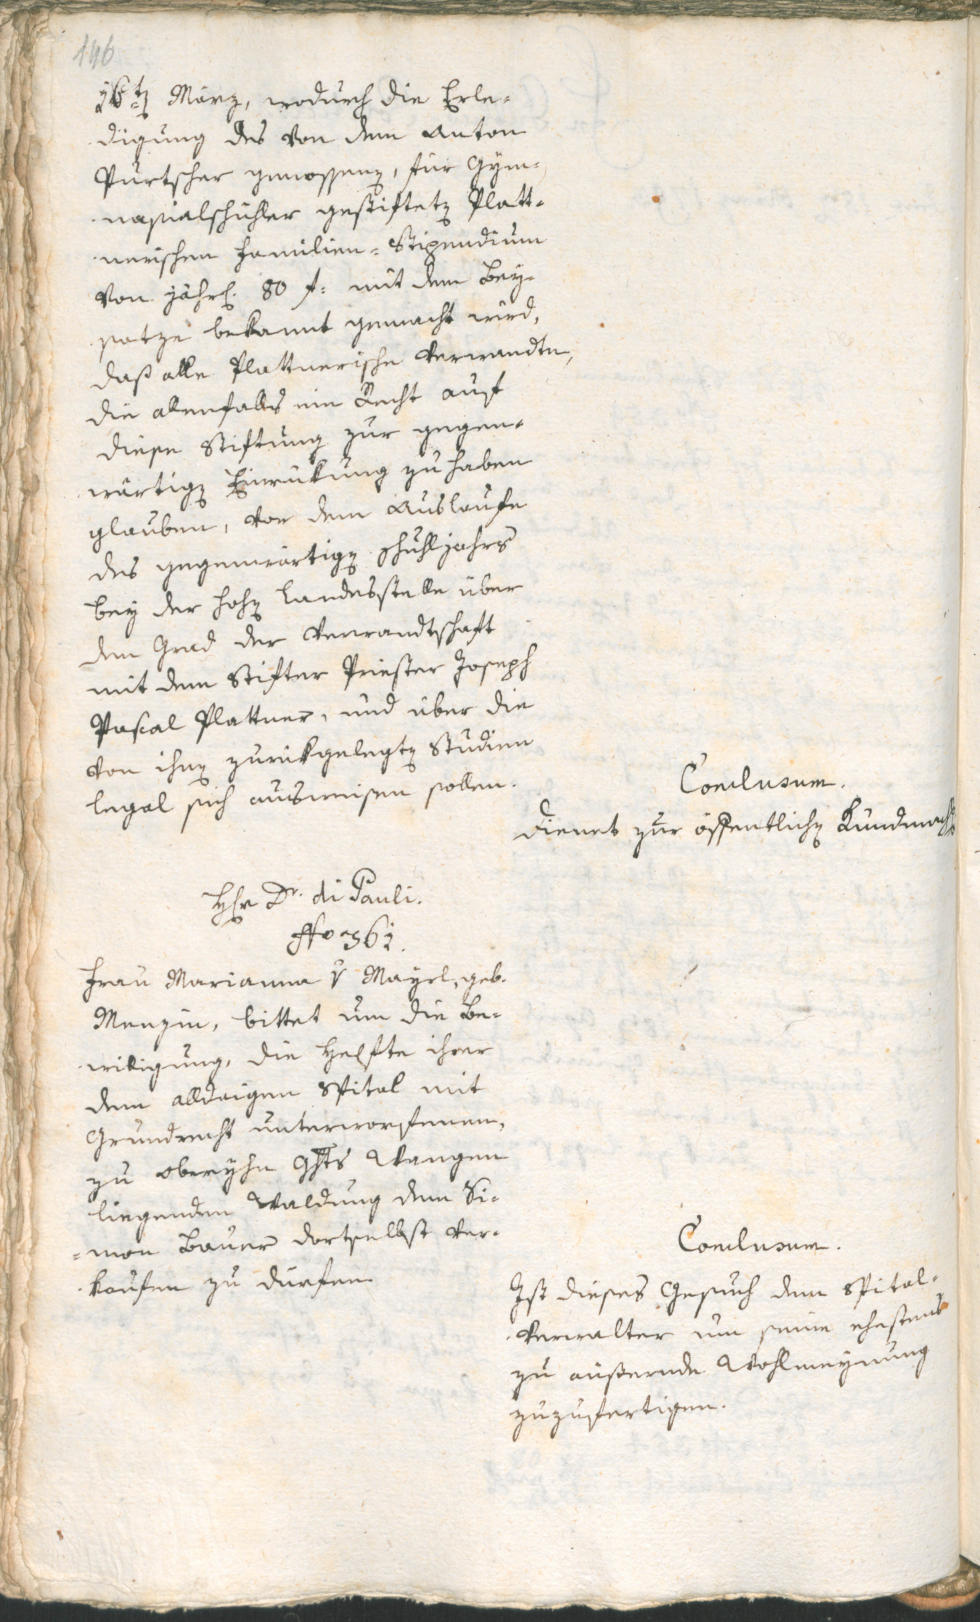 146
16t März, wodurch die Erle-
digung des von dem Anton
Purtscher genossenen, für Gym-
nasialschühler gestifteten Platt-
nerischen Familien-Stipendium
von jährl. 80 f: mit dem Bey-
satze bekannt gemacht wird,
daß alle Plattnerische Verwandte,
die allenfalls ein Recht auf
diese Stiftung zur gegen-
wärtigen Einrükung zu haben
glauben, vor dem Auslaufe
des gegenwärtigen Schuhljahrs
bey der hohen Landesstelle über
den Grad der Verwandtschaft
mit dem Stifter Priester Joseph
Pascal Plattner, und über die
von ihnen zurükgelegten Studien
legal sich ausweisen sollen.
Conclusum.
Dienet zur öffentlichen Kundmachg
Hhr Dr. di Pauli.
No 361.
Frau Marianna v Mayrl, geb.
Menzin, bittet um die Be-
willigung, die Helfte ihrer
dem alldaigen Spital mit
Grundrecht unterworfenen,
zu Oberyhn Ghts Wangen
liegenden Waldung dem Si-
=mon Bauer dortselbst ver-
kaufen zu dürfen
Conclusum.
Ist dieses Gesuch dem Spital-
Verwalter um seine ehestens
zu äußernde Wohlmeynung
zuzufertigen.